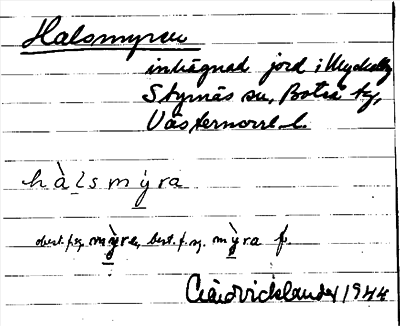 Halsmyran
inhägnad jord i Myckelby
Styrnäs sn, Boteå tg,
Västernorrl. l.
hàlsmỳra
obest. f. sg. mỳra, best. f. sg. mỳra f.
1944